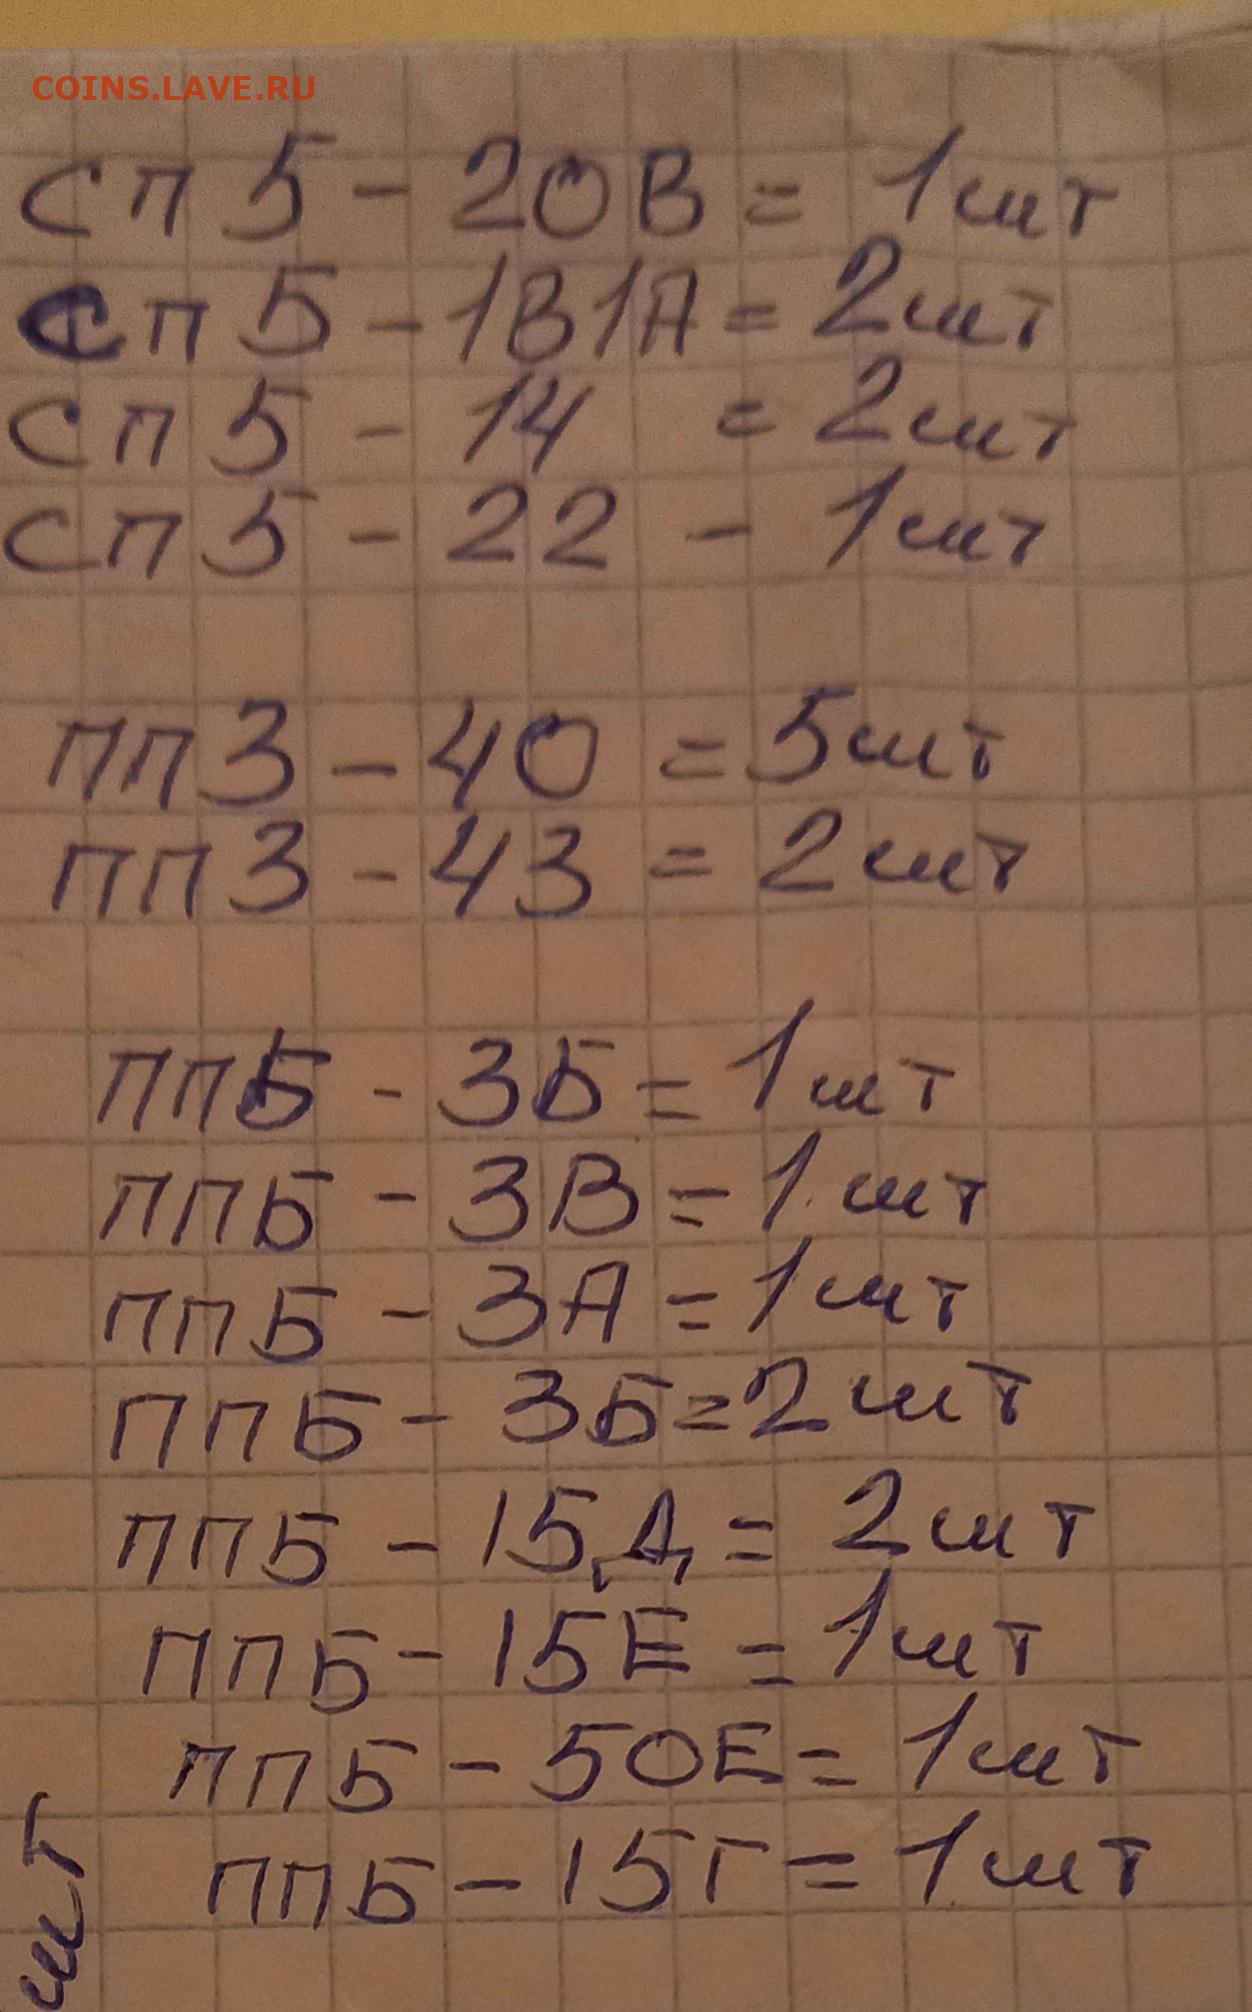 COINS.LAVE.RU
СП5-20В = 1шт
СП5-1В1А = 2шт
СП5-14 = 2шт
СП5-22 - 1шт
ПП3-40 = 5шт
ПП3-43 = 2шт
ППБ-3Б = 1шт
ППБ-3В = 1шт
ППБ-3А = 1шт
ППБ-3Б = 2шт
ППБ-15Д = 2шт
ППБ-15Е = 1шт
ППБ-50Е = 1шт
ППБ-15Г = 1шт
шт